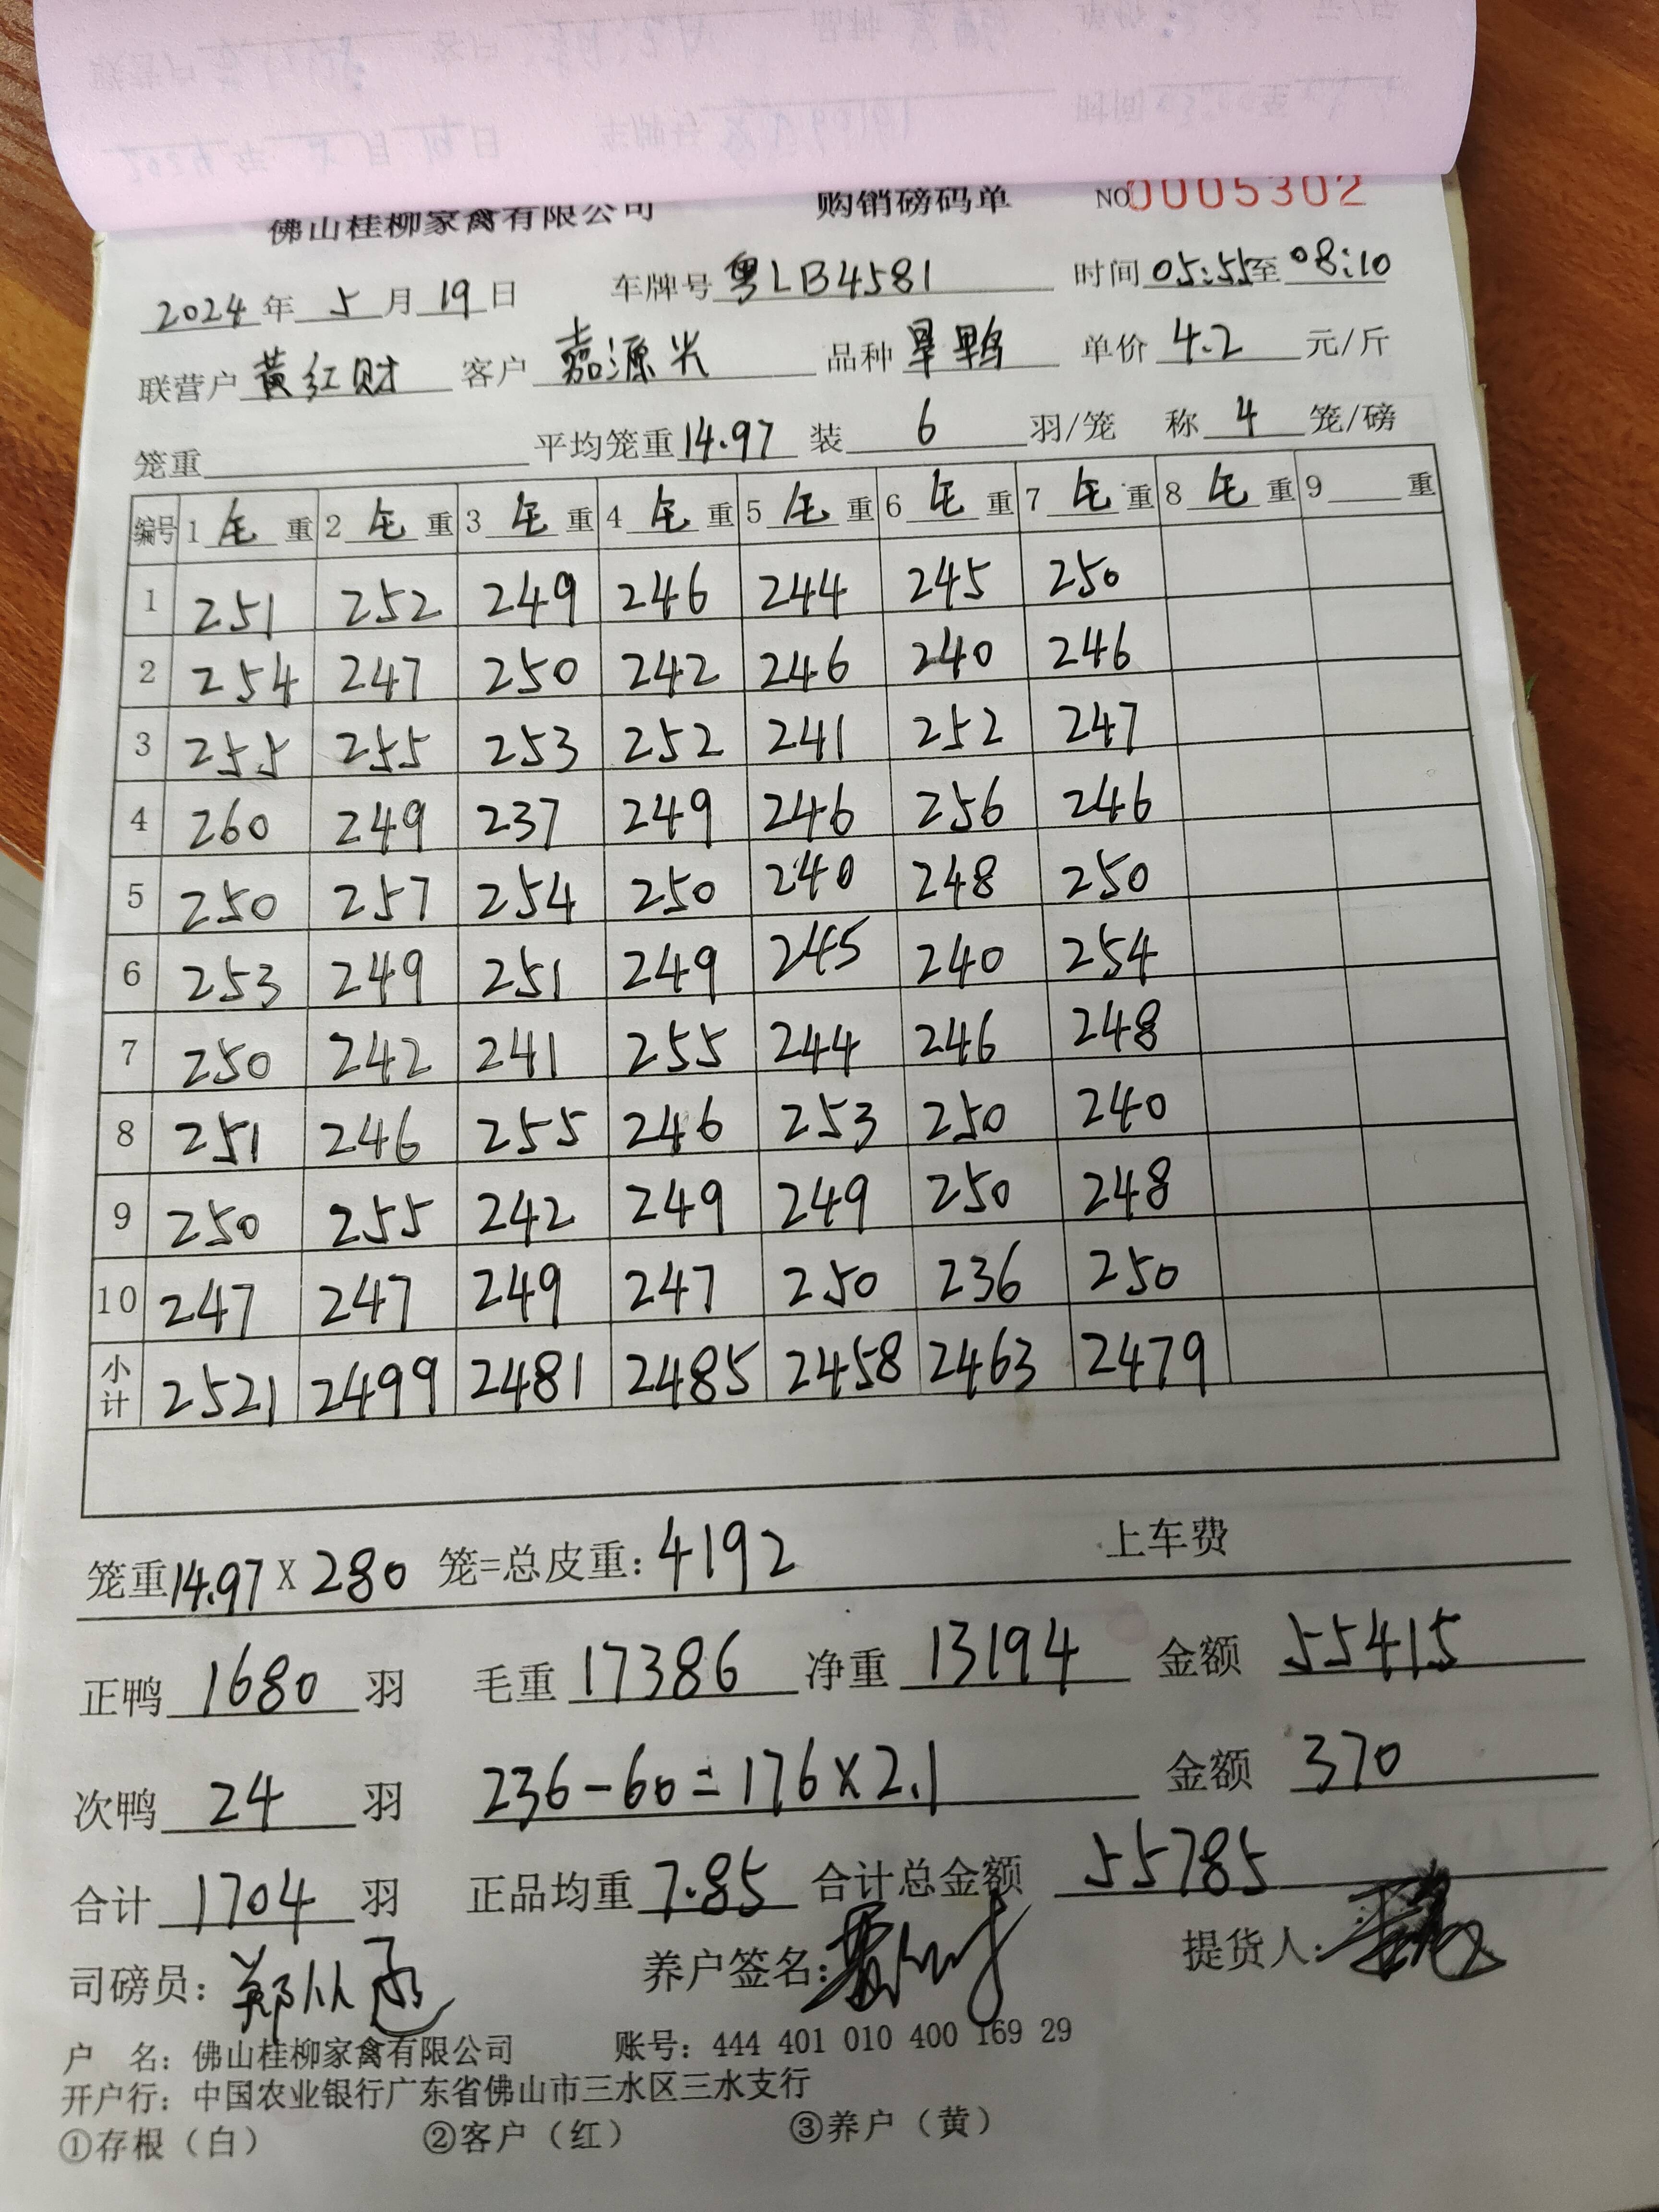 佛山桂柳家禽有限公司 购销磅码单 NO 0005302
2024年 5月 19日 车牌号 粤LB4581 时间 05:55至 08:10
联营户 黄红财 客户 嘉源兴 品种 旱鸭 单价 4.2 元/斤
笼重 平均笼重 14.97 装 6 羽/笼 称 4 笼/磅
编号 1 毛 重 2 毛 重 3 毛 重 4 毛 重 5 毛 重 6 毛 重 7 毛 重 8 毛 重 9 重
1 251 252 249 246 244 245 250
2 254 247 250 242 246 240 246
3 255 255 253 252 241 252 247
4 260 249 237 249 246 256 246
5 250 257 254 250 240 248 250
6 253 249 251 249 245 240 254
7 250 242 241 255 244 246 248
8 251 246 255 246 253 250 240
9 250 255 242 249 249 250 248
10 247 247 249 247 250 236 250
小计 2521 2499 2481 2485 2458 2463 2479
笼重14.97 X 280 笼=总皮重: 4192 上车费
正鸭 1680 羽 毛重 17386 净重 13194 金额 55415
次鸭 24 羽 236-60=176×2.1 金额 370
合计 1704 羽 正品均重 7.85 合计总金额 55785
司磅员: 养户签名: 提货人:
户 名: 佛山桂柳家禽有限公司 账号: 444 401 010 400 169 29
开户行: 中国农业银行广东省佛山市三水区三水支行
①存根（白） ②客户（红） ③养户（黄）